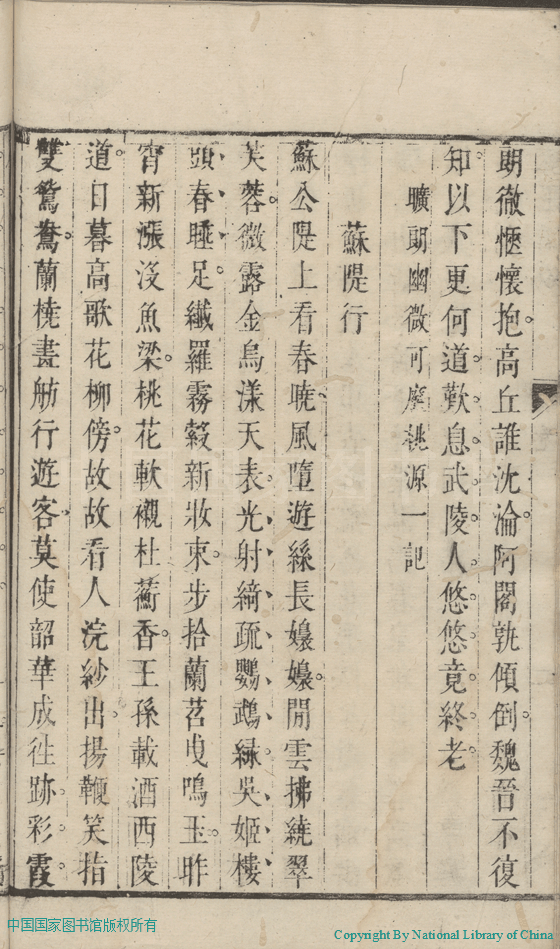 朗徹愜懷抱高丘誰沈淪阿閣孰傾倒魏晉不復
知以下更何道歎息武陵人悠悠竟終老
曠朗幽微可摩桃源一記
蘇隄行
蘇公隄上看春曉風墮遊絲長嬝嬝閒雲拂繞翠
芙蓉微露金烏漾天表光射綺疏鸚鵡綠吳姬樓
頭春睡足纖羅霧縠新妝束步拾蘭苕曳鳴玉昨
宵新漲沒魚梁桃花軟襯杜蘅香王孫載酒西陵
道日暮高歌花柳傍故故看人浣紗出揚鞭笑指
雙鴛鴦蘭橈畫舫行遊客莫使韶華成往跡彩霞
中国国家图书馆版权所有
Copyright By National Library of China